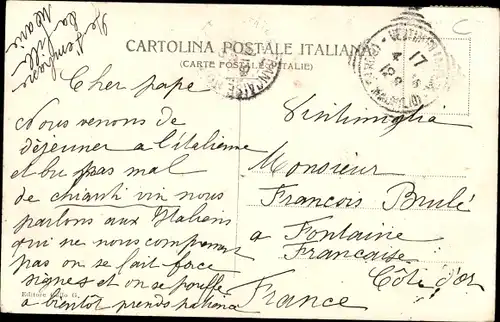 CARTOLINA POSTALE ITALIANA
(CARTE POSTALE D'ITALIE)
Cher pape
Nous venons de
déjeuner a l'italienne
et bu pas mal
de chianti vin nous
parlons aux Italiens
qui ne nous comprenne
pas on se fait face
signes et on se pouffe
a bientôt prends patience
Vintimiglia
Monsieur
Francois Brulé
a Fontaine
Francaise
Côte d'or
France
Editore G.